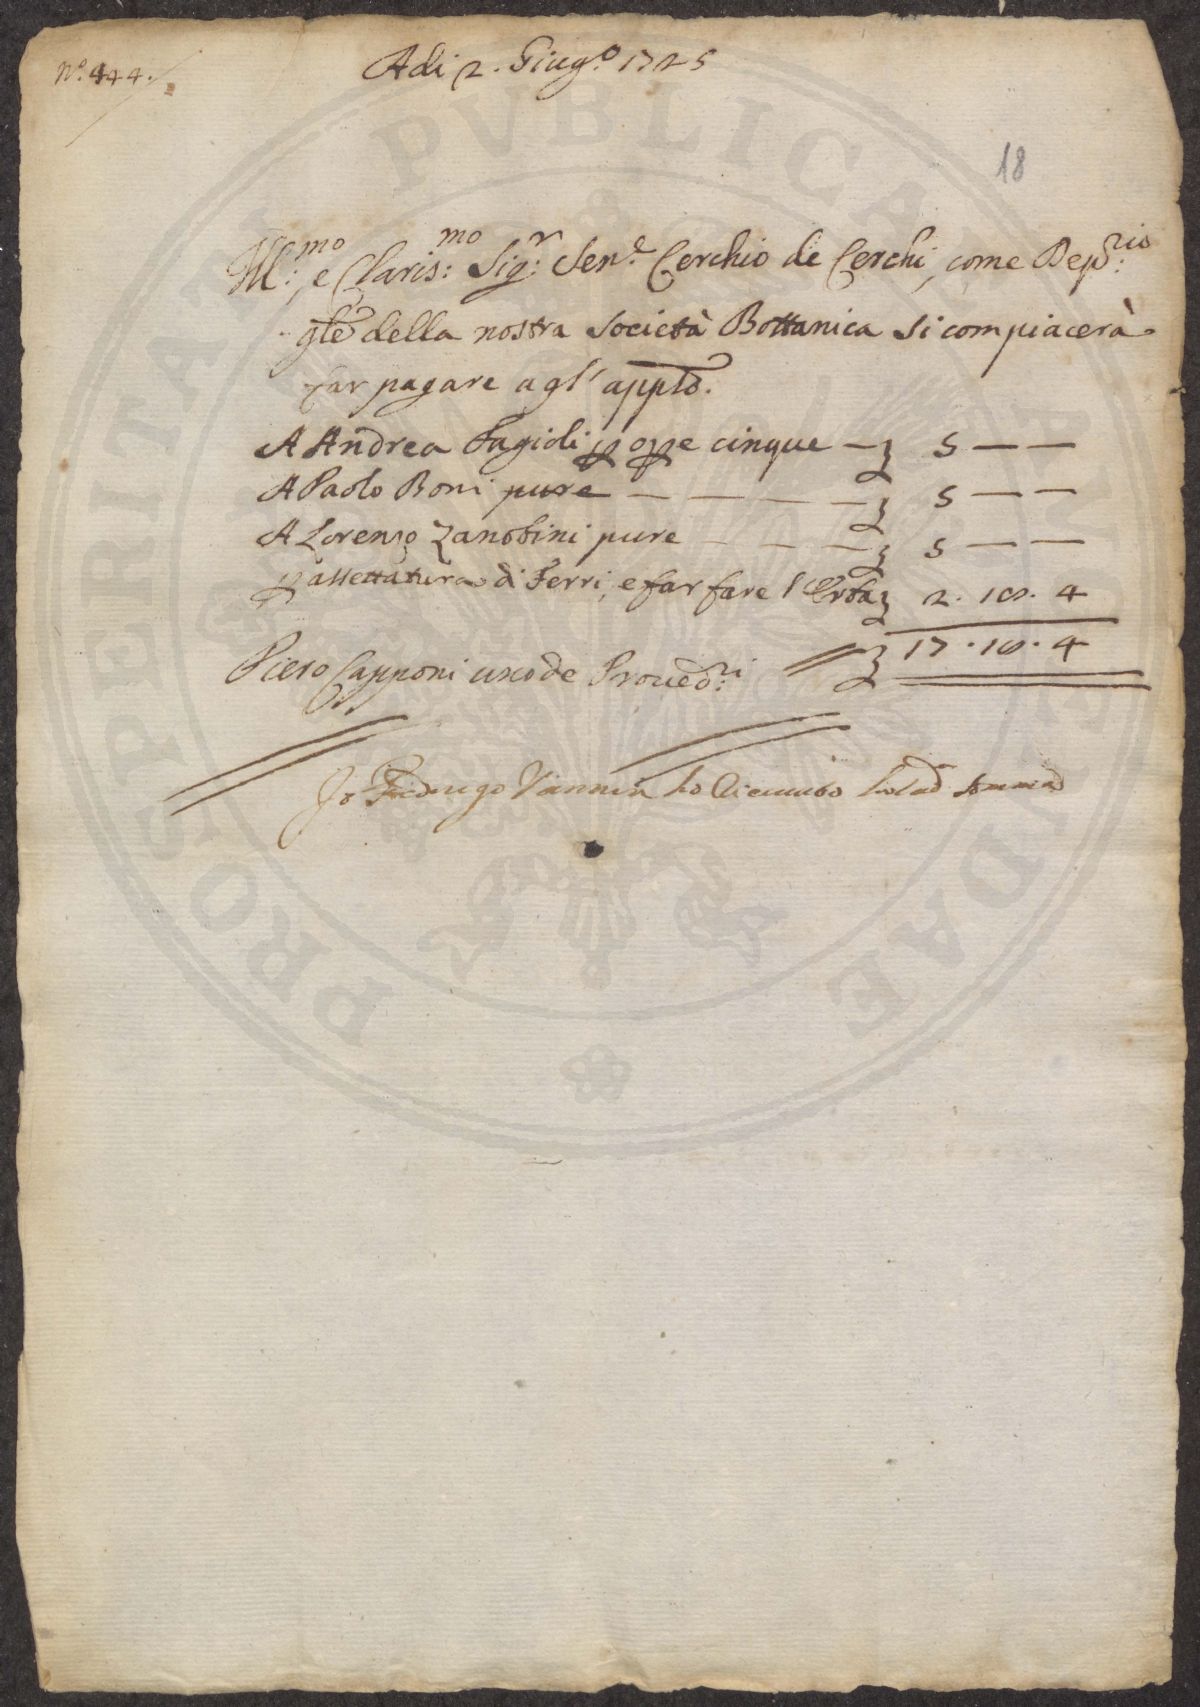 N.° 444.
Adi 2. Giug.° 1725
18
Ill:mo, e Claris:mo Sig:r Sen.e Cerchio de Cerchi, come Dep:rio
gle della nostra Società Bottanica si compiacerà
far pagare agl' appto.
A Andrea Fagioli p opre cinque — 5 — —
A Paolo Boni pure — — — — — 5 — —
A Lorenzo Zanobini pure — — — 5 — —
p assettatura di Ferri, e far fare l'Erba 2. 10. 4
Piero Capponi uno de Proved:ri 17. 10. 4
Io Federigo Vannini ho Riceuuto somma
PROSPERITATI PVBLICAE